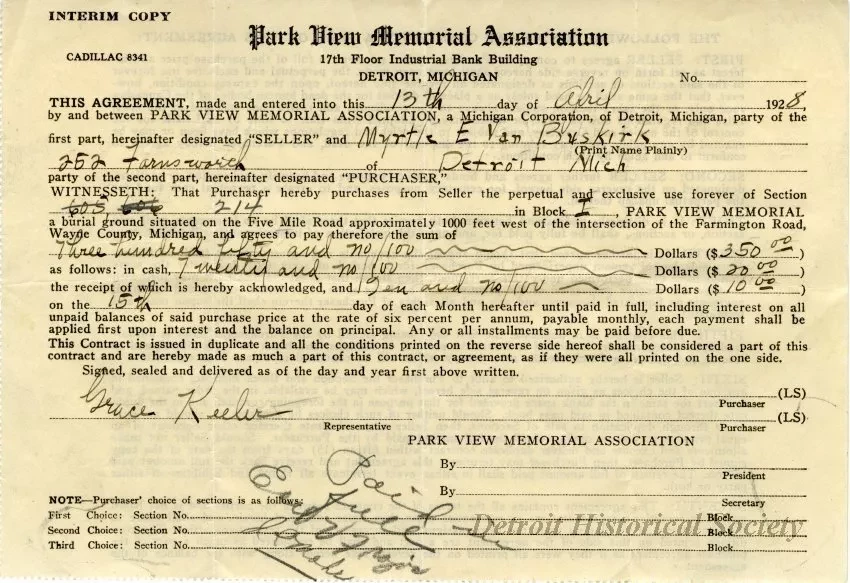 INTERIM COPY
Park View Memorial Association
CADILLAC 8341
17th Floor Industrial Bank Building
DETROIT, MICHIGAN
No.
THIS AGREEMENT, made and entered into this 13th day of April 1928,
by and between PARK VIEW MEMORIAL ASSOCIATION, a Michigan Corporation, of Detroit, Michigan, party of the
first part, hereinafter designated "SELLER" and Myrtle E Van Buskirk
(Print Name Plainly)
252 Farnsworth of Detroit Mich
party of the second part, hereinafter designated "PURCHASER,"
WITNESSETH: That Purchaser hereby purchases from Seller the perpetual and exclusive use forever of Section
605, 606 214 in Block I, PARK VIEW MEMORIAL
a burial ground situated on the Five Mile Road approximately 1000 feet west of the intersection of the Farmington Road,
Wayne County, Michigan, and agrees to pay therefore the sum of
Three hundred fifty and no/100 Dollars ($350 00)
as follows: in cash, Twenty and no/100 Dollars ($20 00)
the receipt of which is hereby acknowledged, and Ten and no/100 Dollars ($10 00)
on the 15th day of each Month hereafter until paid in full, including interest on all
unpaid balances of said purchase price at the rate of six percent per annum, payable monthly, each payment shall be
applied first upon interest and the balance on principal. Any or all installments may be paid before due.
This Contract is issued in duplicate and all the conditions printed on the reverse side hereof shall be considered a part of this
contract and are hereby made as much a part of this contract, or agreement, as if they were all printed on the one side.
Signed, sealed and delivered as of the day and year first above written.
(LS)
Purchaser
Grace Keeler
(LS)
Representative
Purchaser
PARK VIEW MEMORIAL ASSOCIATION
By
President
By
Secretary
Paid
full
NOTE—Purchaser' choice of sections is as follows:
First Choice: Section No. Block
Second Choice: Section No. Block
Third Choice: Section No. Block
Detroit Historical Society